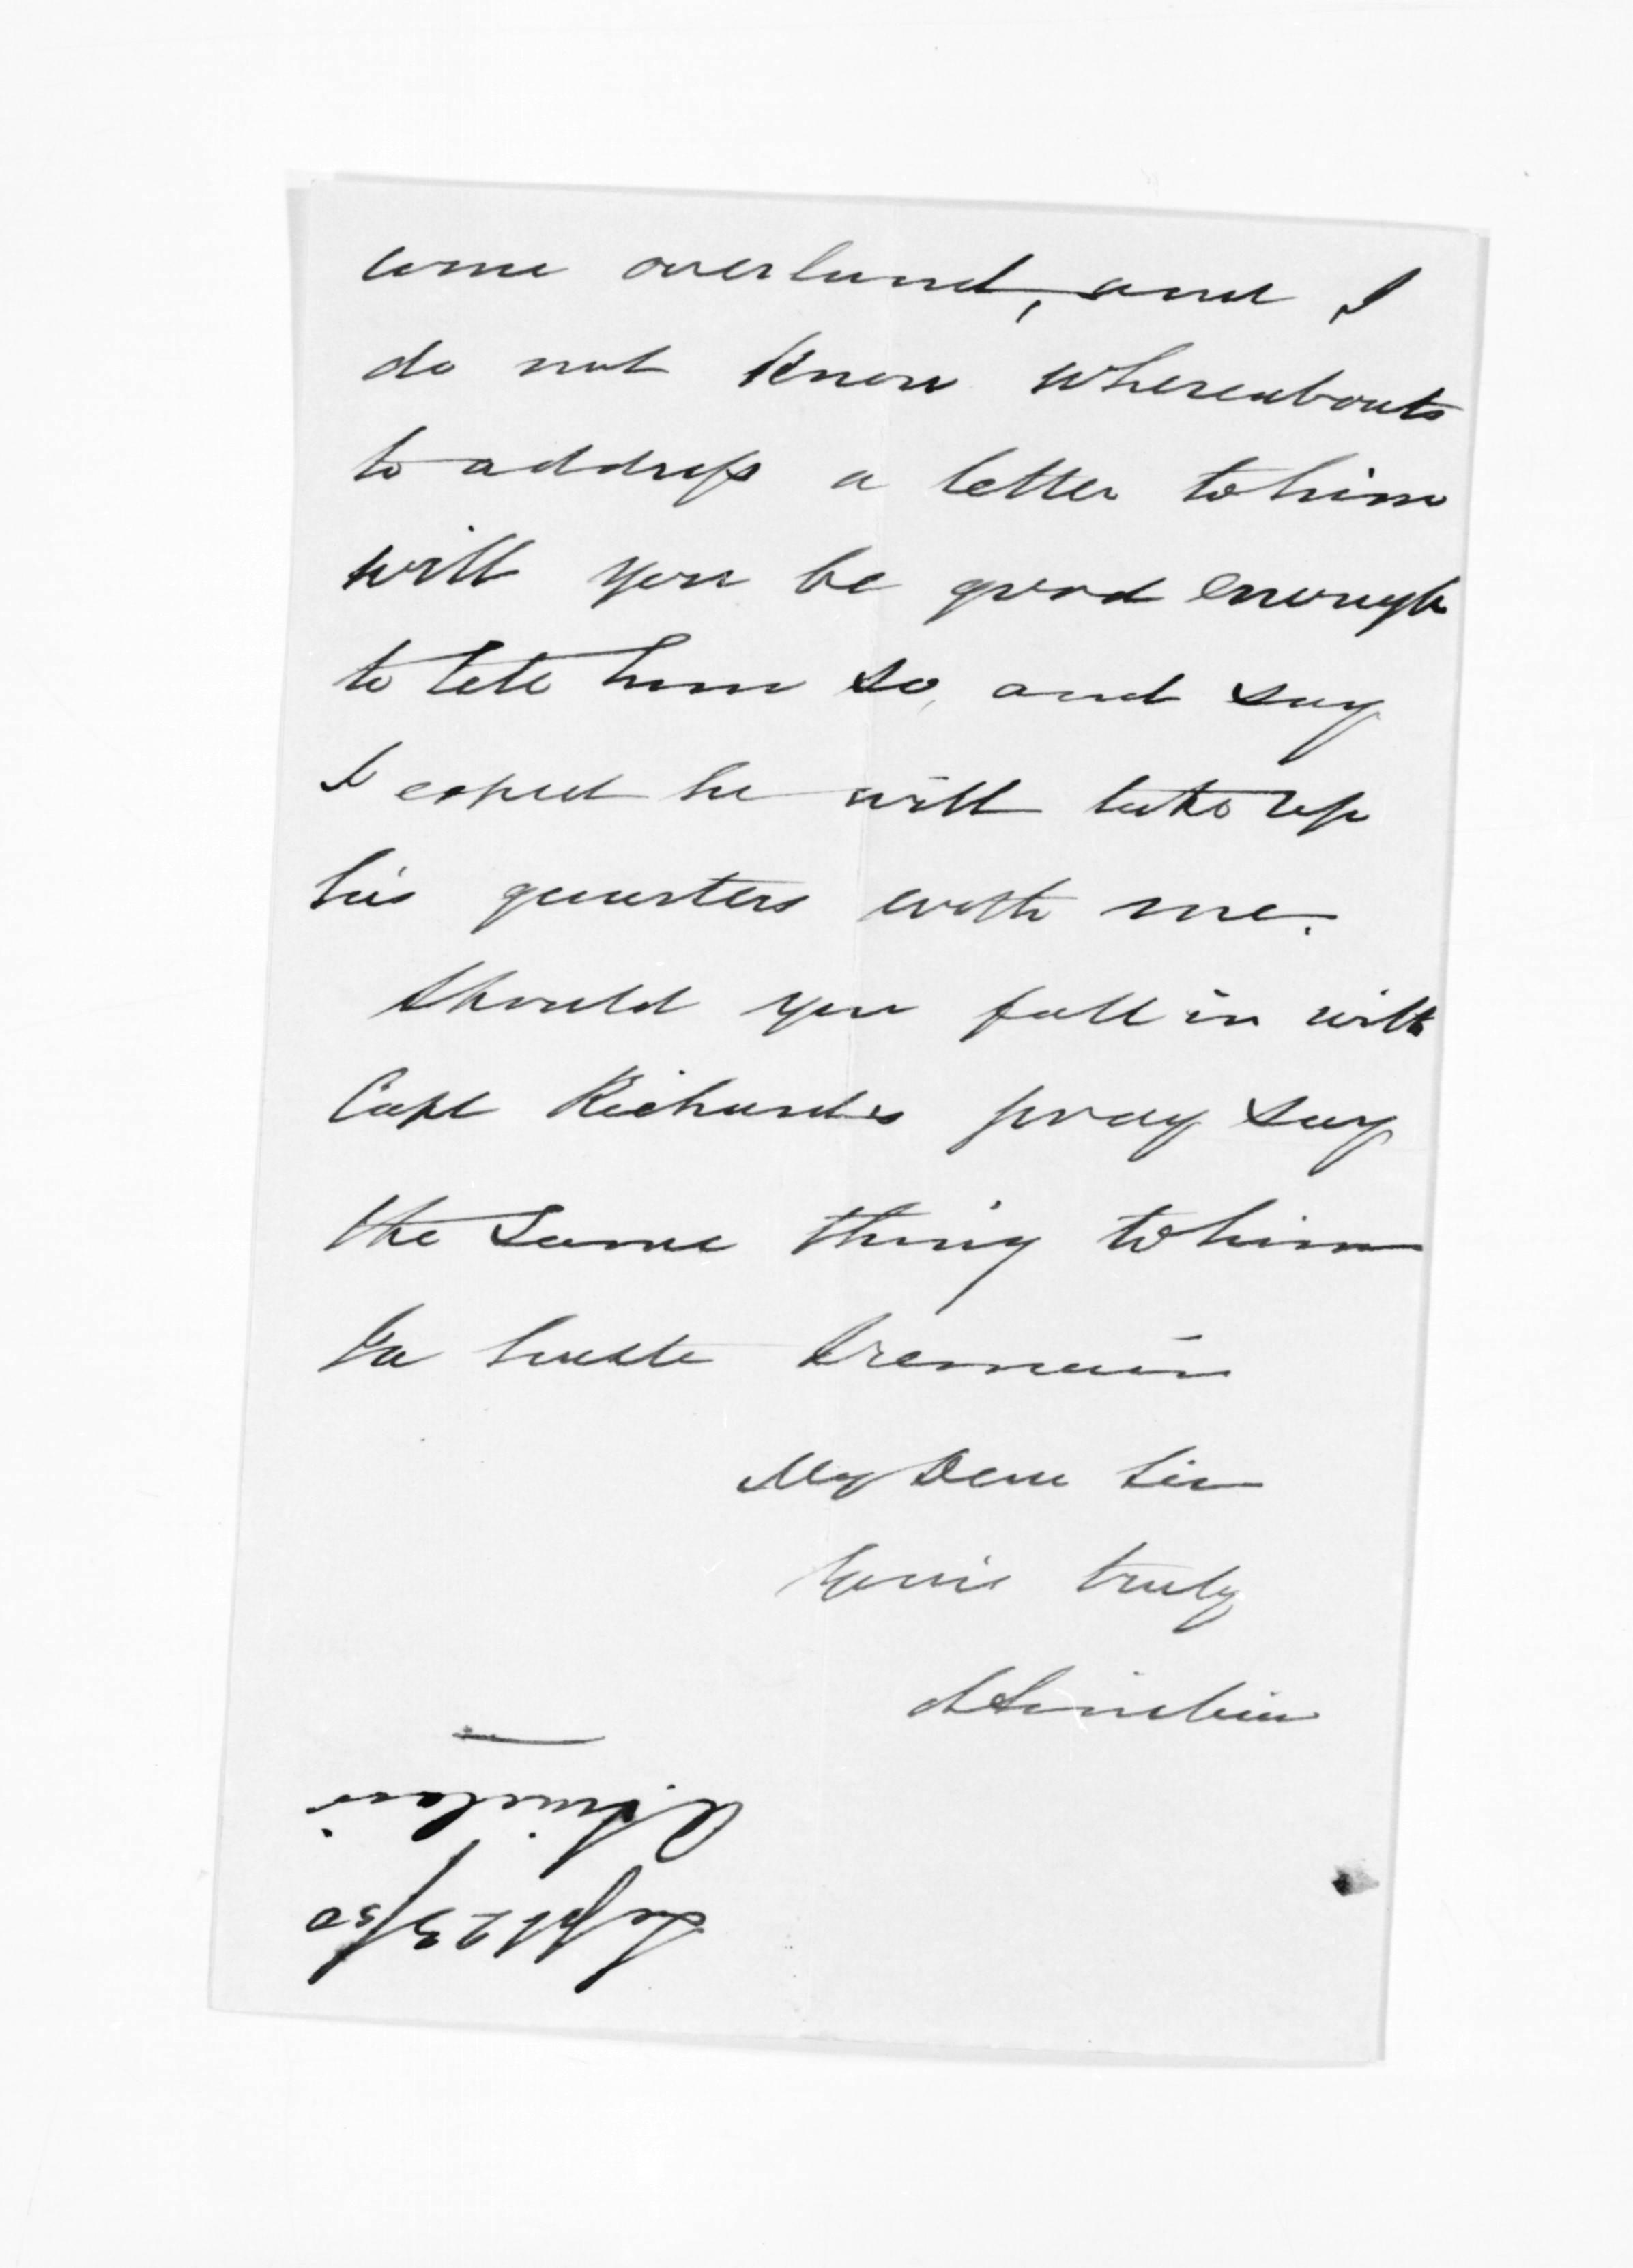 come overland, and I
do not know whereabouts
to address a letter to him
will you be good enough
to tell him so, and say
I expect he will take up
his quarters with me.
Should you fall in with
Capt Richards pray say
the same thing to him
In haste I remain
My Dear Sir
Yours truly
A Sinclair
A. Sinclair
Sept 23/50